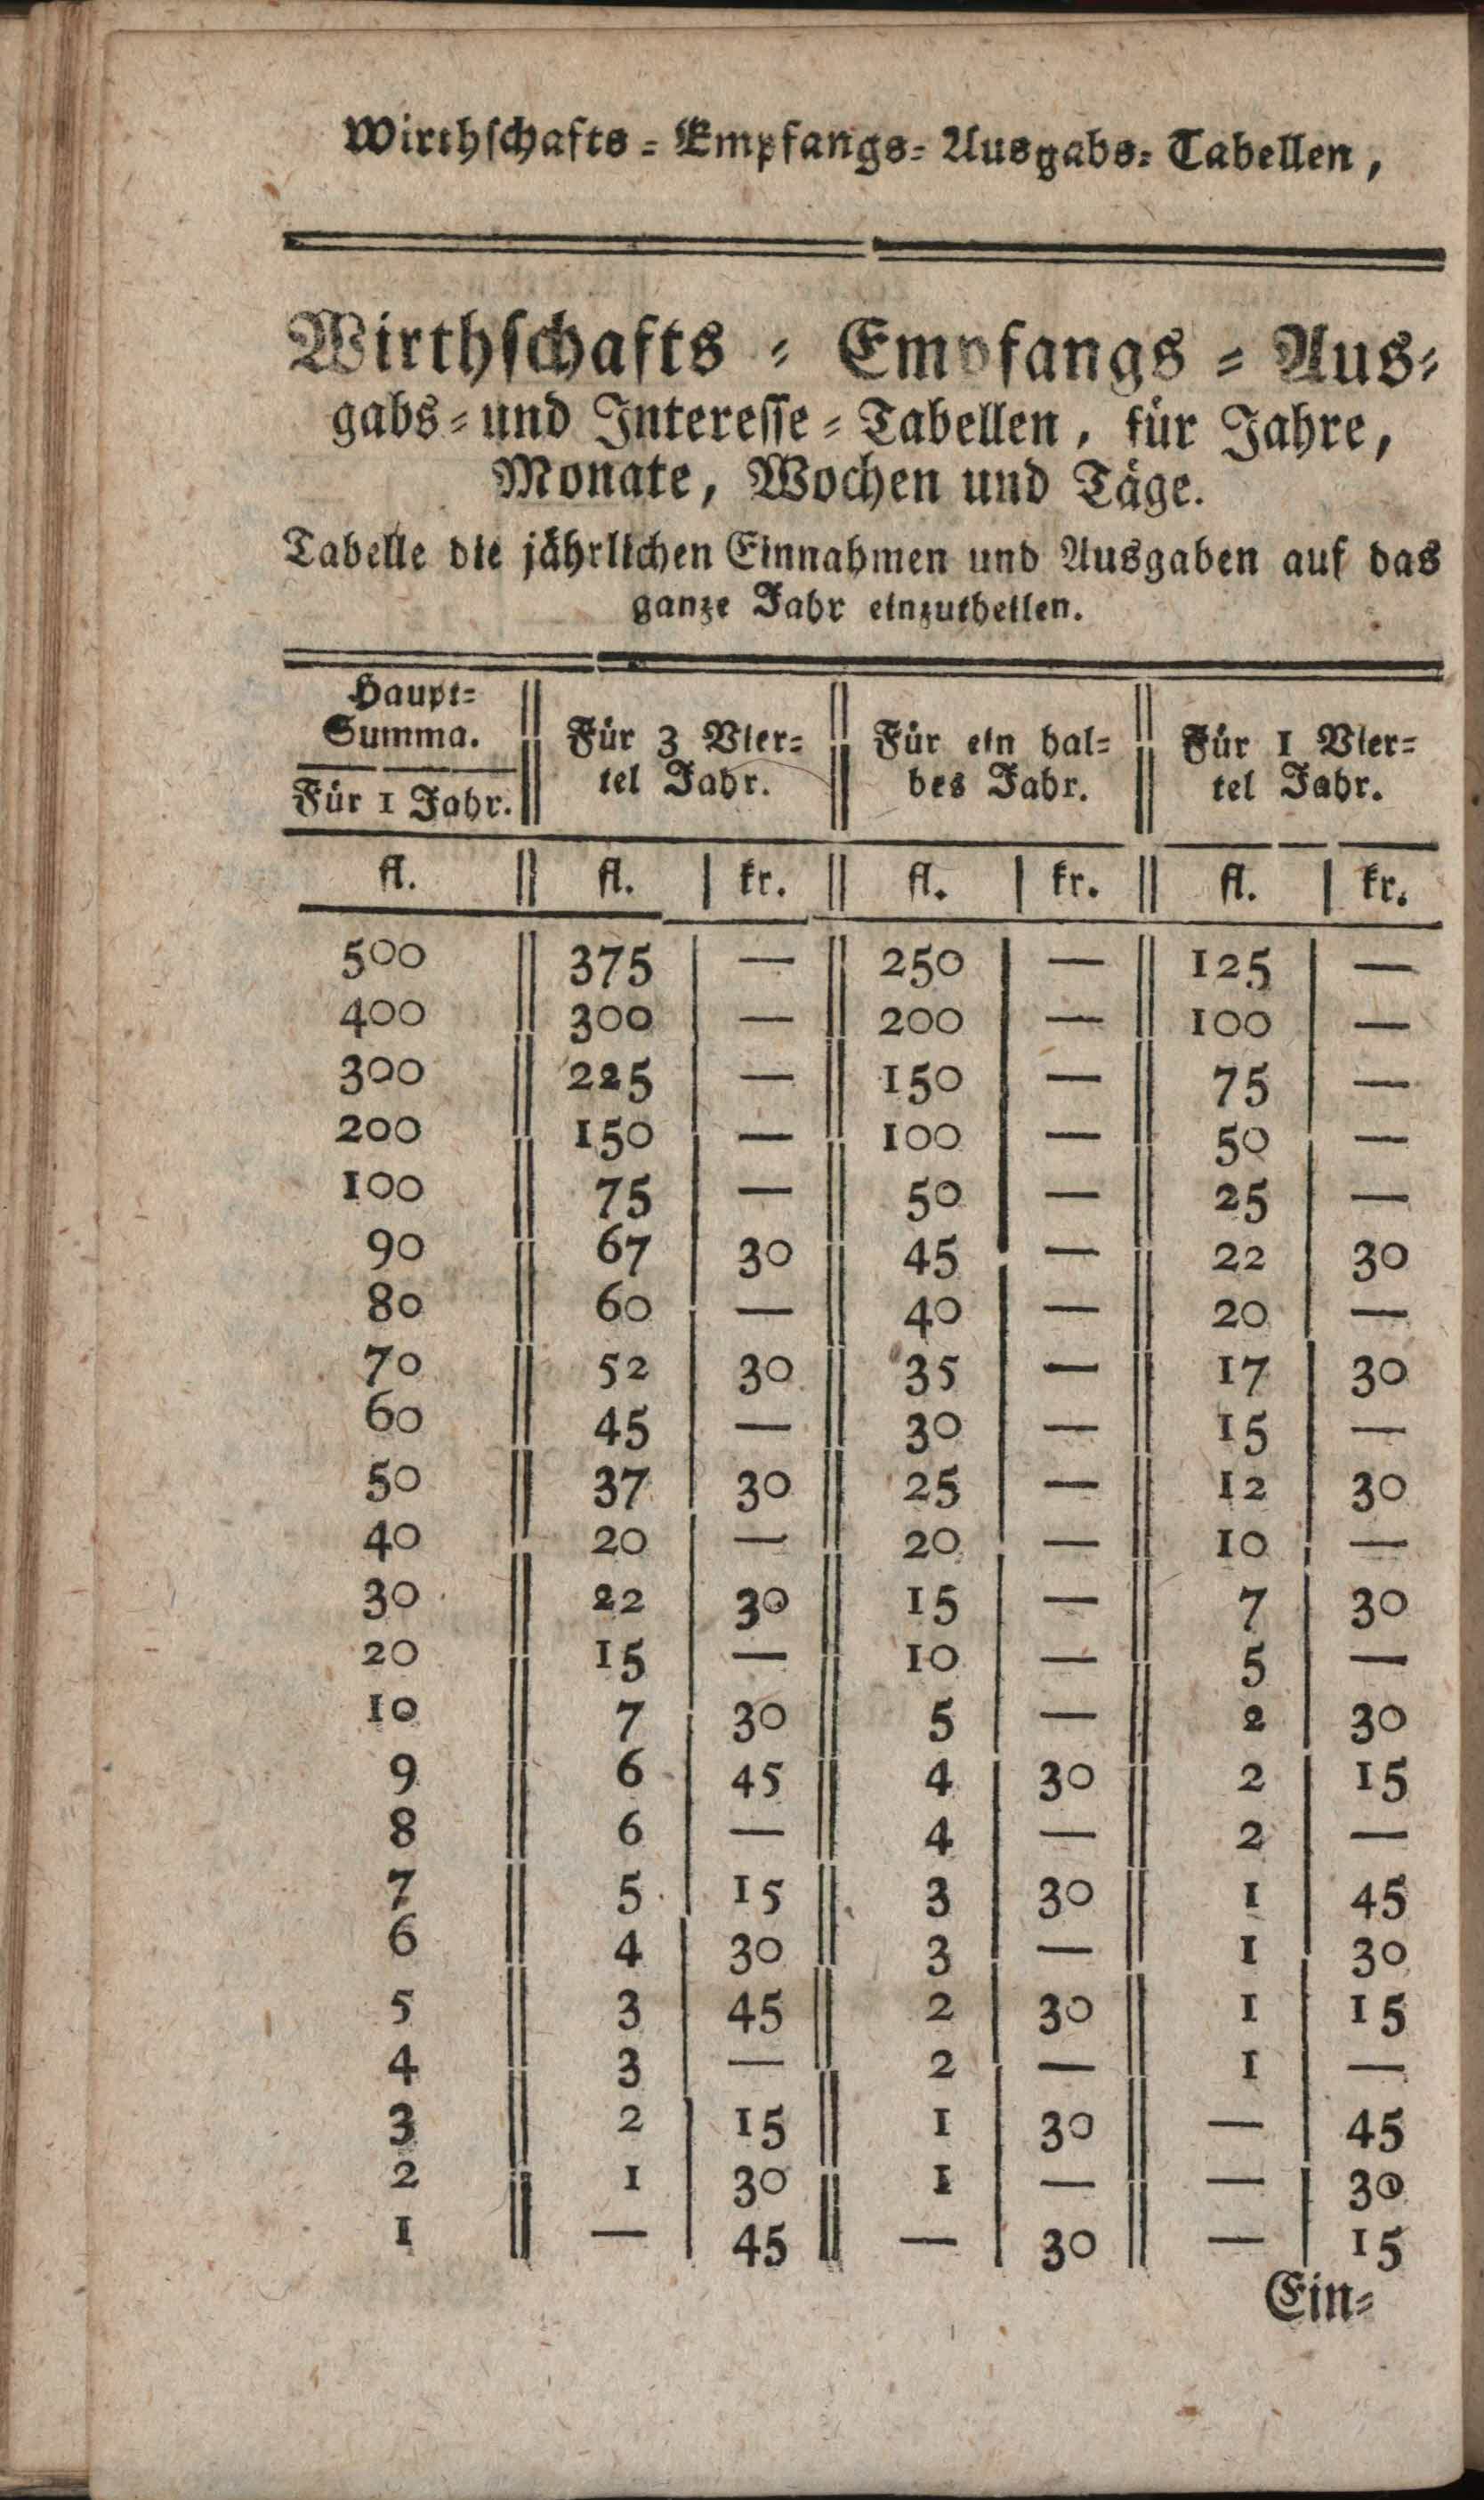 Wirthſchafts = Empfangs= Ausgabs= Tabellen,
Wirthſchafts = Empfangs = Aus=
gabs = und Intereſſe = Tabellen, für Jahre,
Monate, Wochen und Täge.
Tabelle die jährlichen Einnahmen und Ausgaben auf das
ganze Jahr einzutheilen.
Haupt=
Summa.
Für 1 Jahr.
Für 3 Vier=
tel Jahr.
Für ein hal=
bes Jahr.
Für 1 Vier=
tel Jahr.
fl. fl. kr. fl. kr. fl. kr.
500 375 — 250 — 125 —
400 300 — 200 — 100 —
300 225 — 150 — 75 —
200 150 — 100 — 50 —
100 75 — 50 — 25 —
90 67 30 45 — 22 30
80 60 — 40 — 20 —
70 52 30 35 — 17 30
60 45 — 30 — 15 —
50 37 30 25 — 12 30
40 20 — 20 — 10 —
30 22 30 15 — 7 30
20 15 — 10 — 5 —
10 7 30 5 — 2 30
9 6 45 4 30 2 15
8 6 — 4 — 2 —
7 5 15 3 30 1 45
6 4 30 3 — 1 30
5 3 45 2 30 1 15
4 3 — 2 — 1 —
3 2 15 1 30 — 45
2 1 30 1 — — 30
1 — 45 — 30 — 15
Ein=